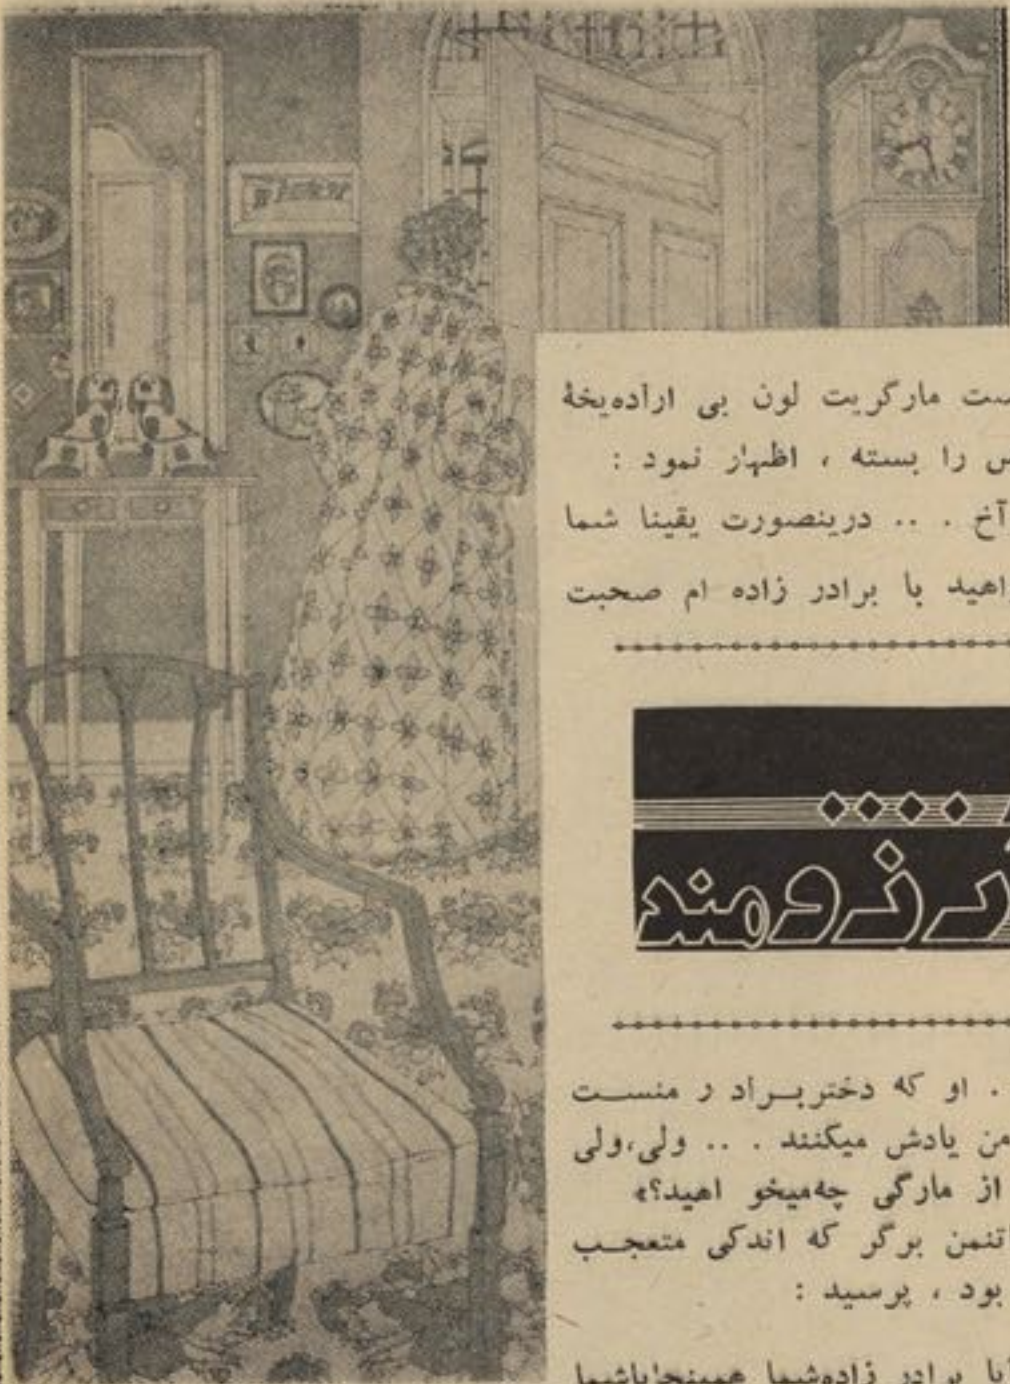 ست مارگریت لون بی اراده‌یخهٔ
س را بسته ، اظهار نمود :
آخ . .. درینصورت یقینا شما
اهید با برادر زاده ام صحبت
رزومند
. او که دختربـراد ر منســت
من یادش میکنند . .. ولی،ولی
از مارگی چه‌میخو اهید؟»
تنمن برگر که اندکی متعجـب
بود ، پرسید :
یا برادر زاده‌شما همینجا‌باشما